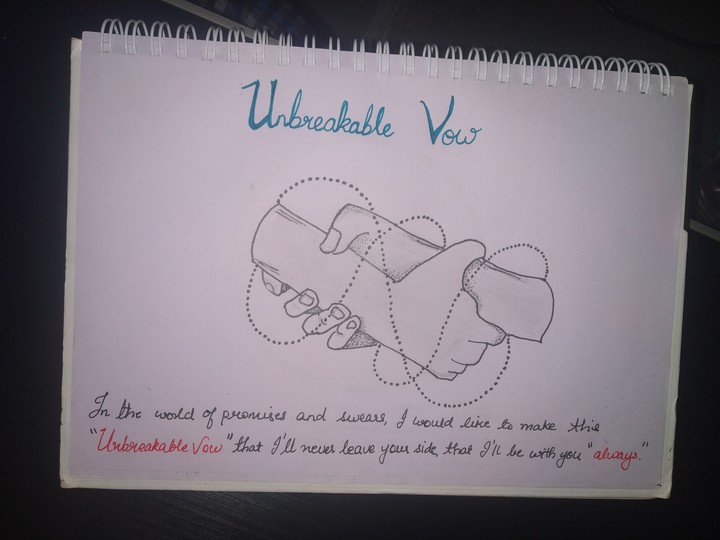 Unbreakable Vow
In the world of promises and swears, I would like to make this
"Unbreakable Vow" that I'll never leave your side, that I'll be with you "always."